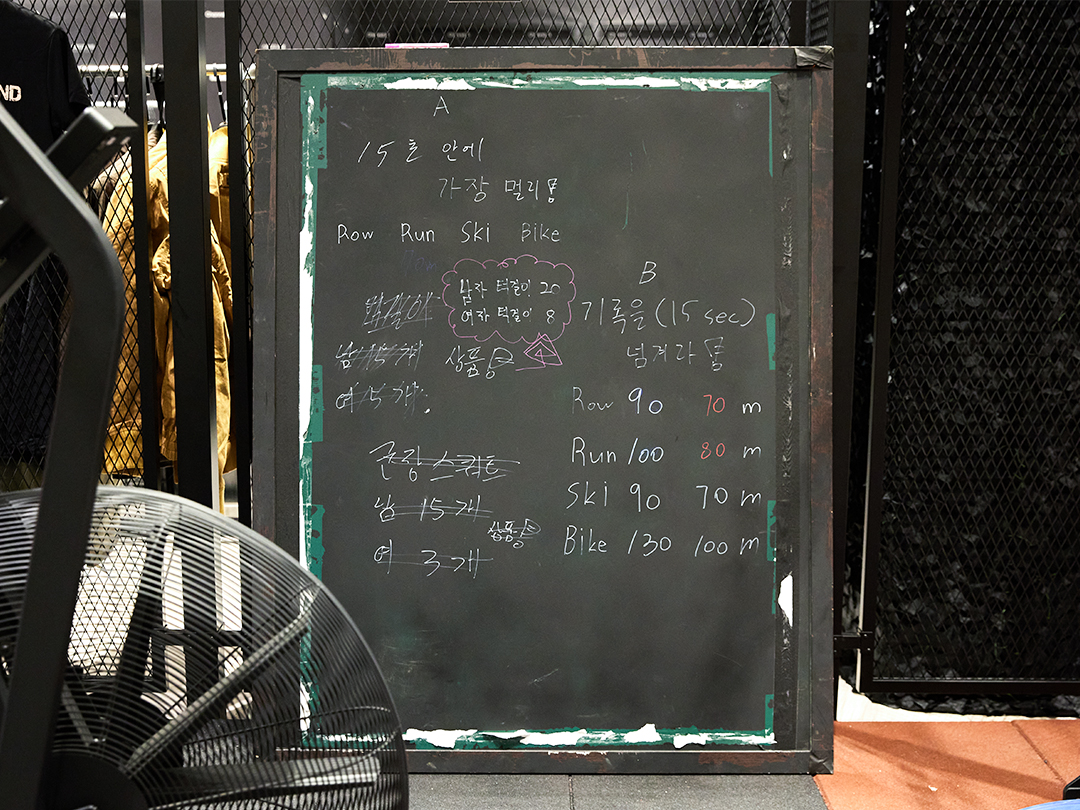 ND
A
15초 안에
가장 멀리
Row Run Ski Bike
남자 턱걸이 20
여자 턱걸이 8
턱걸이
남 15개
상품
여 5개
B
기록을(15 sec)
넘겨라
Row 90 70 m
Run 100 80 m
Ski 90 70 m
Bike 130 100 m
군장 스쿼트
남 15개
상품
여 3개